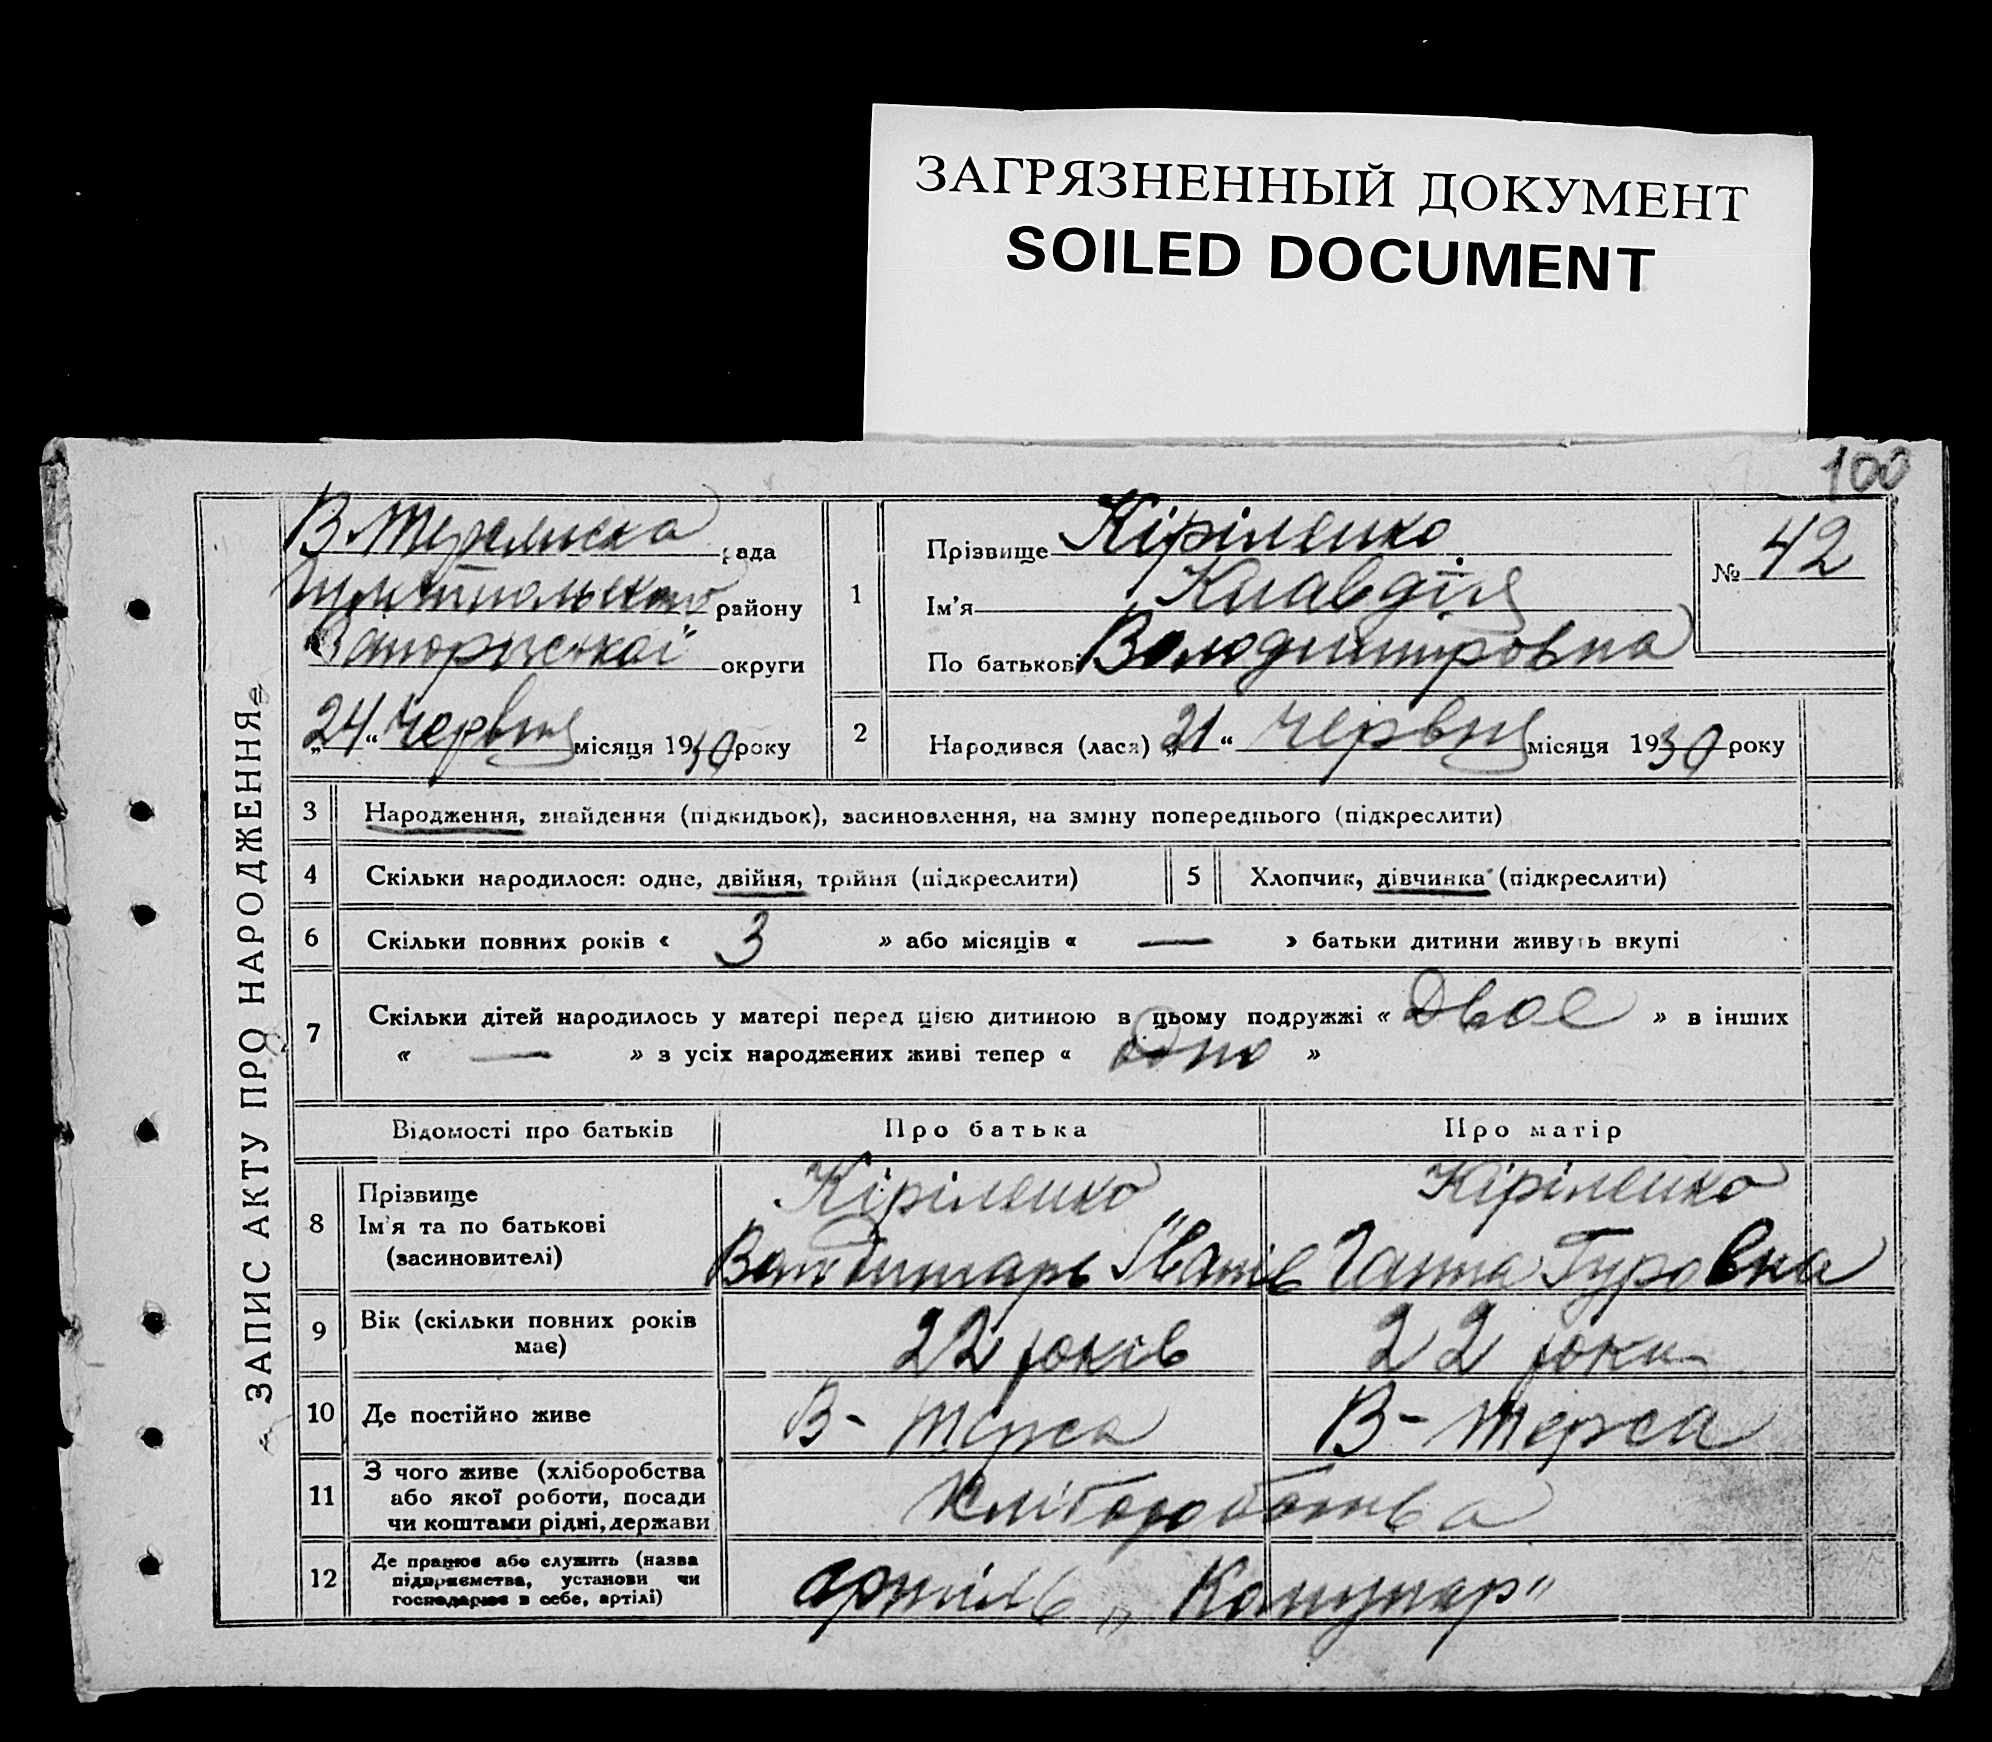 ЗАГРЯЗНЕННЫЙ ДОКУМЕНТ
SOILED DOCUMENT
100
ЗАПИС АКТУ ПРО НАРОДЖЕННЯ
рада
району
Запорижскої округи
„24“ червня місяця 1930 року
1
Прізвище Кіріленко
Ім'я Клавдія
По батькові Володимировна
№ 42
2 Народився (лася) „21“ червня місяця 1930 року
3 Народження, знайдення (підкидьок), засиновлення, на зміну попереднього (підкреслити)
4 Скільки народилося: одне, двійня, трійня (підкреслити)
5 Хлопчик, дівчинка (підкреслити)
6 Скільки повних років « 3 » або місяців « — » батьки дитини живуть вкупі
7 Скільки дітей народилось у матері перед цією дитиною в цьому подружжі « Двоє » в інших
« — » з усіх народжених живі тепер « одно »
Відомості про батьків Про батька Про матір
8 Прізвище
Ім'я та по батькові
(засиновителі)
Кіріленко
Іванів
Кіріленко
Ганна Гуровна
9 Вік (скільки повних років
має)
22 років
22 роки
10 Де постійно живе
В- Терса
В- Терса
11 З чого живе (хліборобства
або якої роботи, посади
чи коштами рідні, держави
Хліборобства
12 Де працює або служить (назва
підприємства, установи чи
господарює в себе, артілі)
артіль „Комунар"